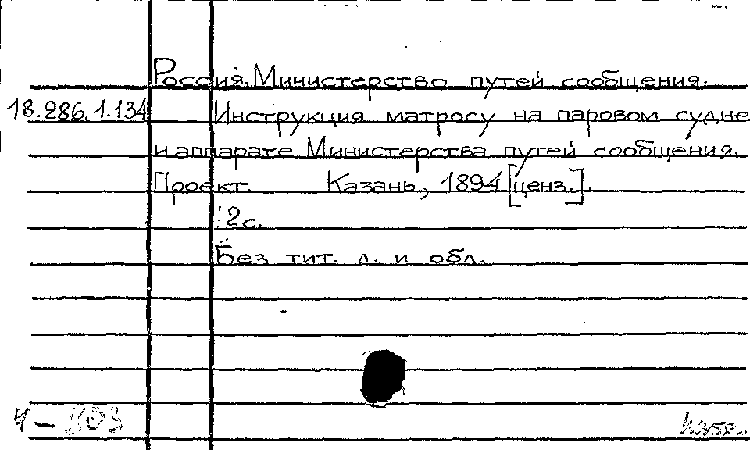 Россия. Министерство путей сообщения.
18.286.1.134 Инструкция матросу на паровом судне
и аппарате Министерства путей сообщения.
Проект. Казань, 1894 [ценз.].
12с.
Без тит. л. и обл.